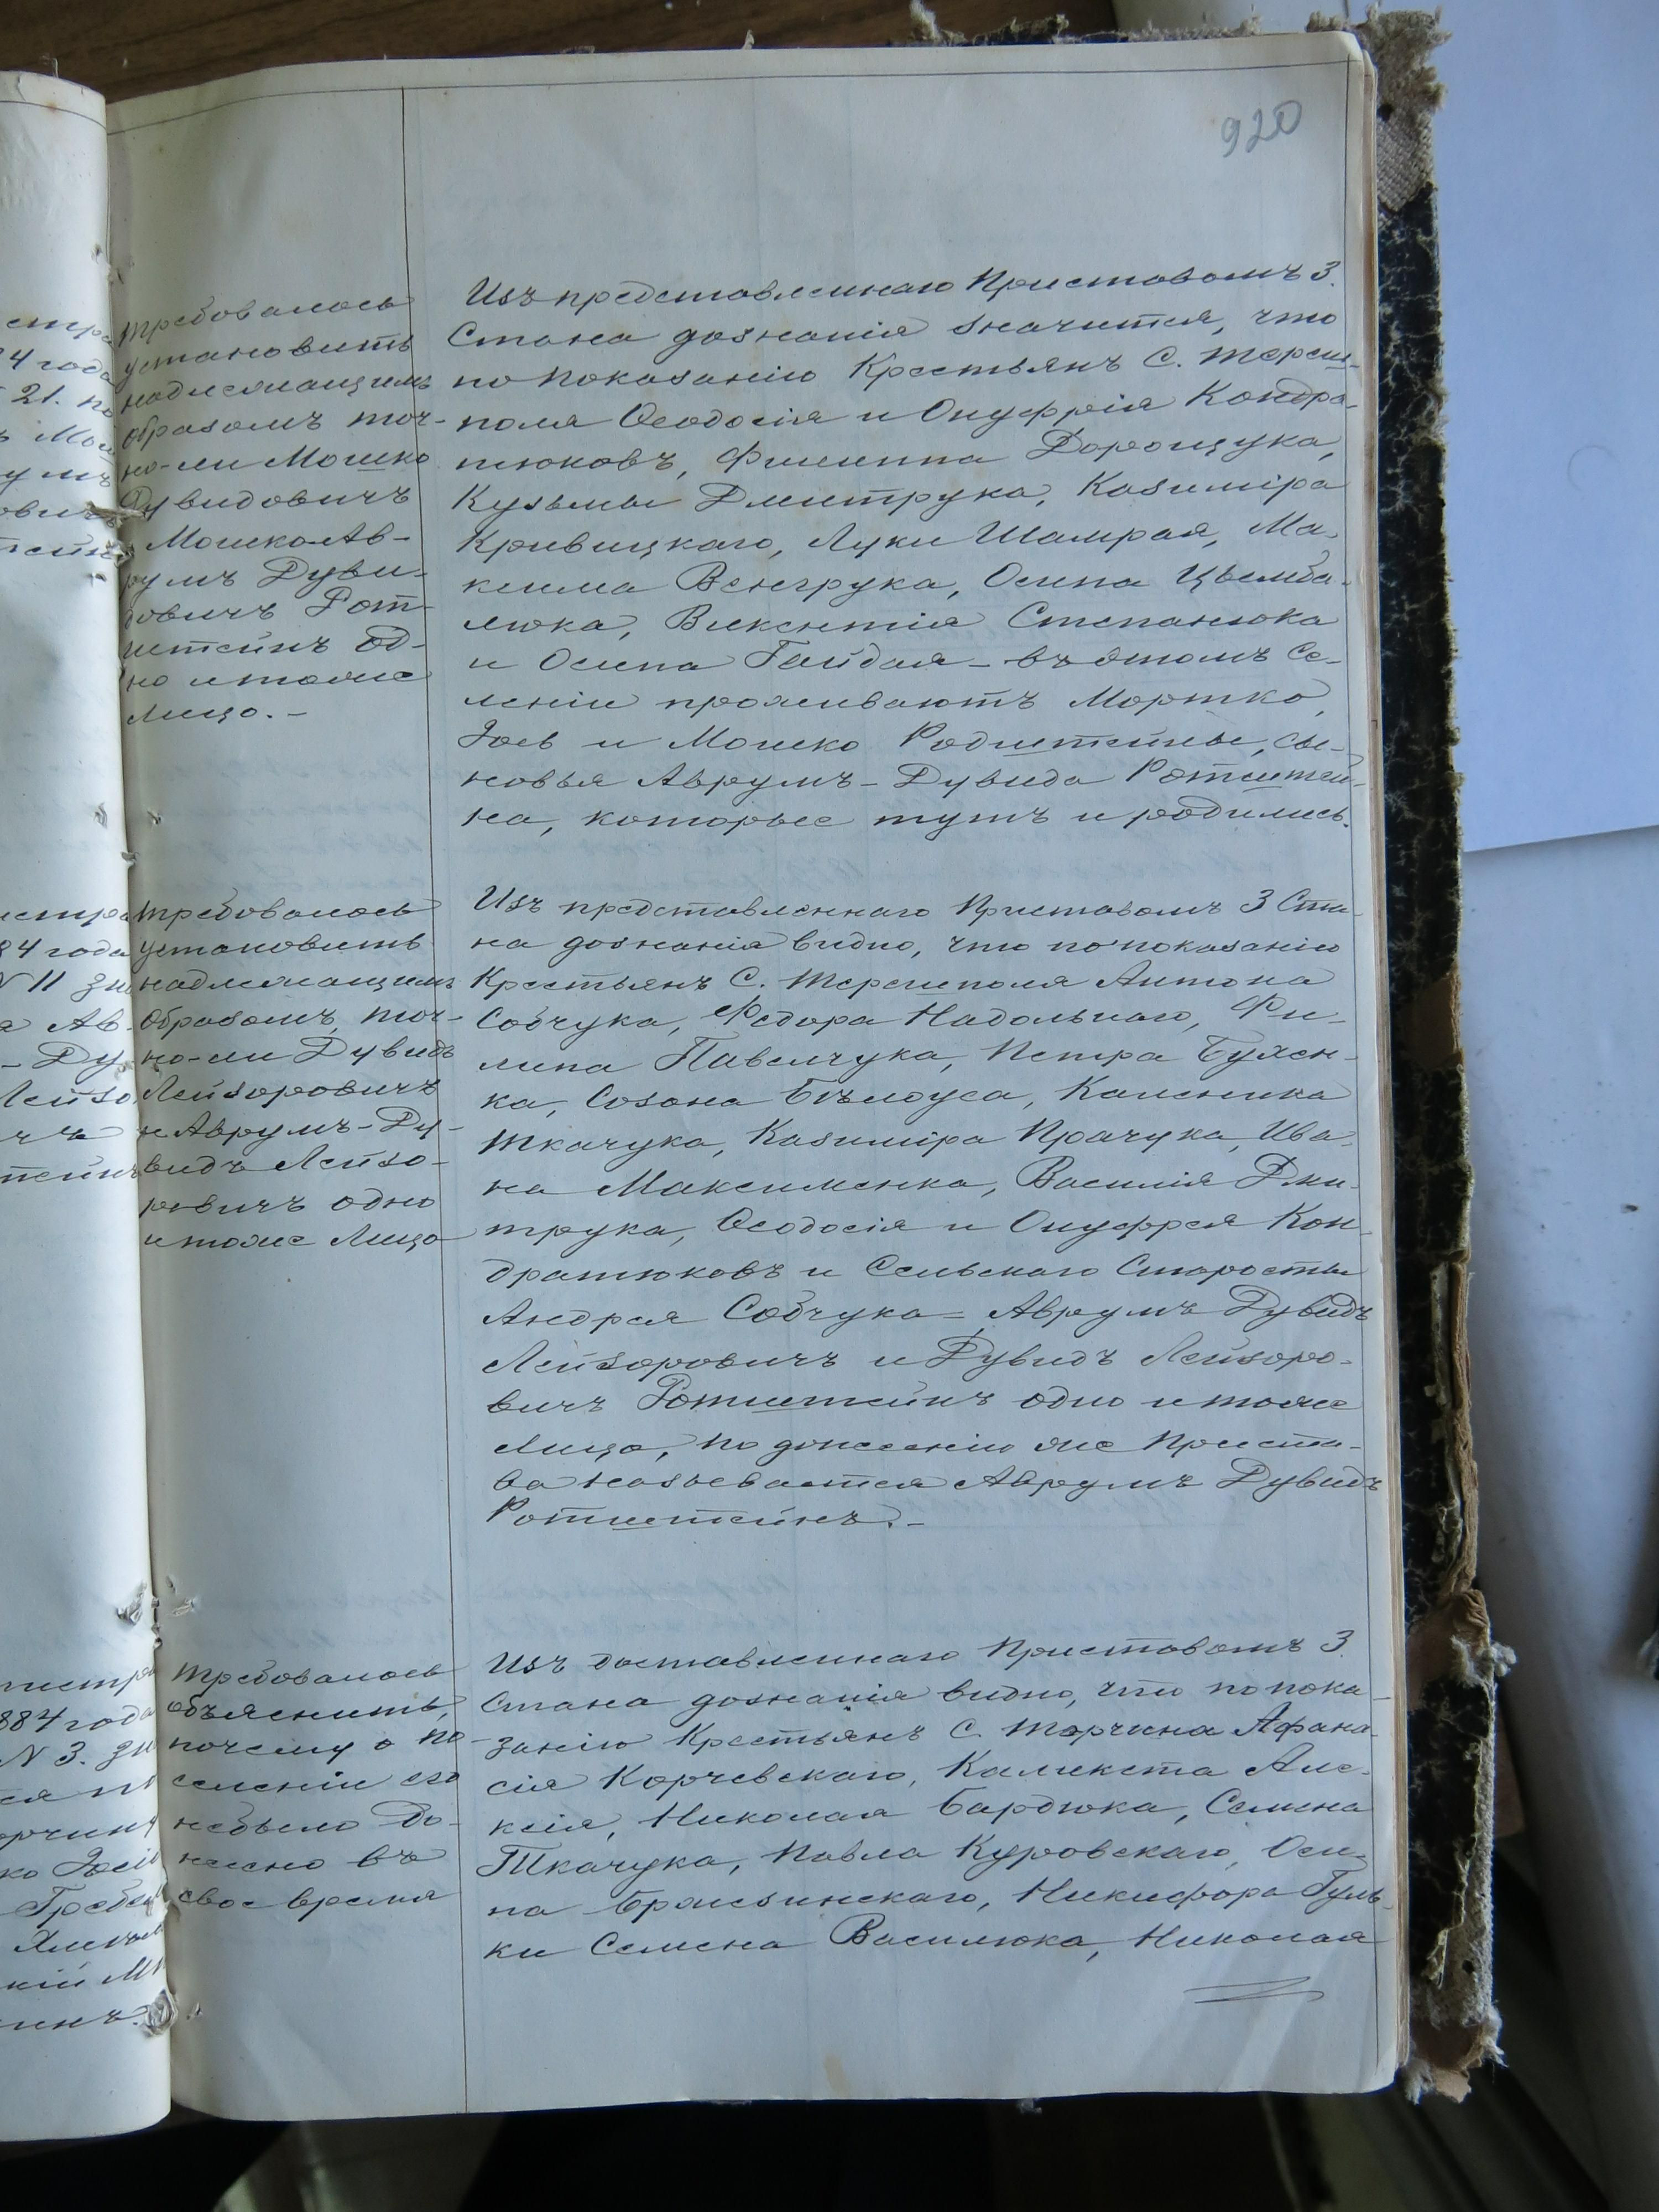 920
Требовалось
установить
надлежащимъ
образомъ точ-
но-ли Мошко
Дувидовичъ
и Мошко Ав-
румъ Дуви-
довичъ Рот-
штейнъ од-
но и тоже
лицо. –
Изъ представленнаго Приставомъ 3.
Стана дознанія значится, что
по показанію Крестьянъ С. Тереш-
поля Ѳеодосія и Онуфрія Кондра-
тюковъ, Филиппа Дорощука,
Кузьмы Дмитрука, Казиміра
Кривицкаго, Луки Шамрая, Ма-
ксима Венгрука, Осипа Цымба-
люка, Викентія Степанюка
и Осипа Гайдая – въ этомъ Се-
леніи проживаютъ Мортко,
Іось и Мошко Родштейны, сы-
новья Аврумъ-Дувида Ротштей-
на, которые тутъ и родились.
Требовалось
установить
надлежащимъ
образомъ, точ-
но-ли Дувидъ
Лейзоровичъ
и Аврумъ-Ду-
видъ Лейзо-
ровичъ одно
и тоже Лицо
Изъ представленнаго Приставомъ 3 Ста-
на дознанія видно, что по показанію
Крестьянъ С. Терешполя Антона
Собчука, Федора Надольнаго, Фи-
липа Павельчука, Петра
ка, Созона Бѣлоуса, Каленика
Ткачука, Казиміра Прачука, Ива-
на Максименка, Василія Дми-
трука, Ѳеодосія и Онуфрея Кон-
дратюковъ и Сельскаго Старосты
Андрея Собчука – Аврумъ Дувидъ
Лейзоровичъ и Дувидъ Лейзоро-
вичъ Ротштейнъ одно и тоже
Лицо, по донесенію же Приста-
ва называется Аврумъ Дувидъ
Ротштейнъ. –
Требовалось
объяснить,
почему о по-
селеніи его
небыло до-
несено въ
свое время
Изъ доставленнаго Приставомъ 3.
Стана дознанія видно, что по пока-
занію Крестьянъ С. Торчина Афана-
сія Корчевскаго, Каликста Але-
ксія, Николая Бардюка, Семена
Ткачука, Павла Куровскаго, Оси-
па Бржезинскаго, Никифора Гуль-
ки Семена Василюка, Николая